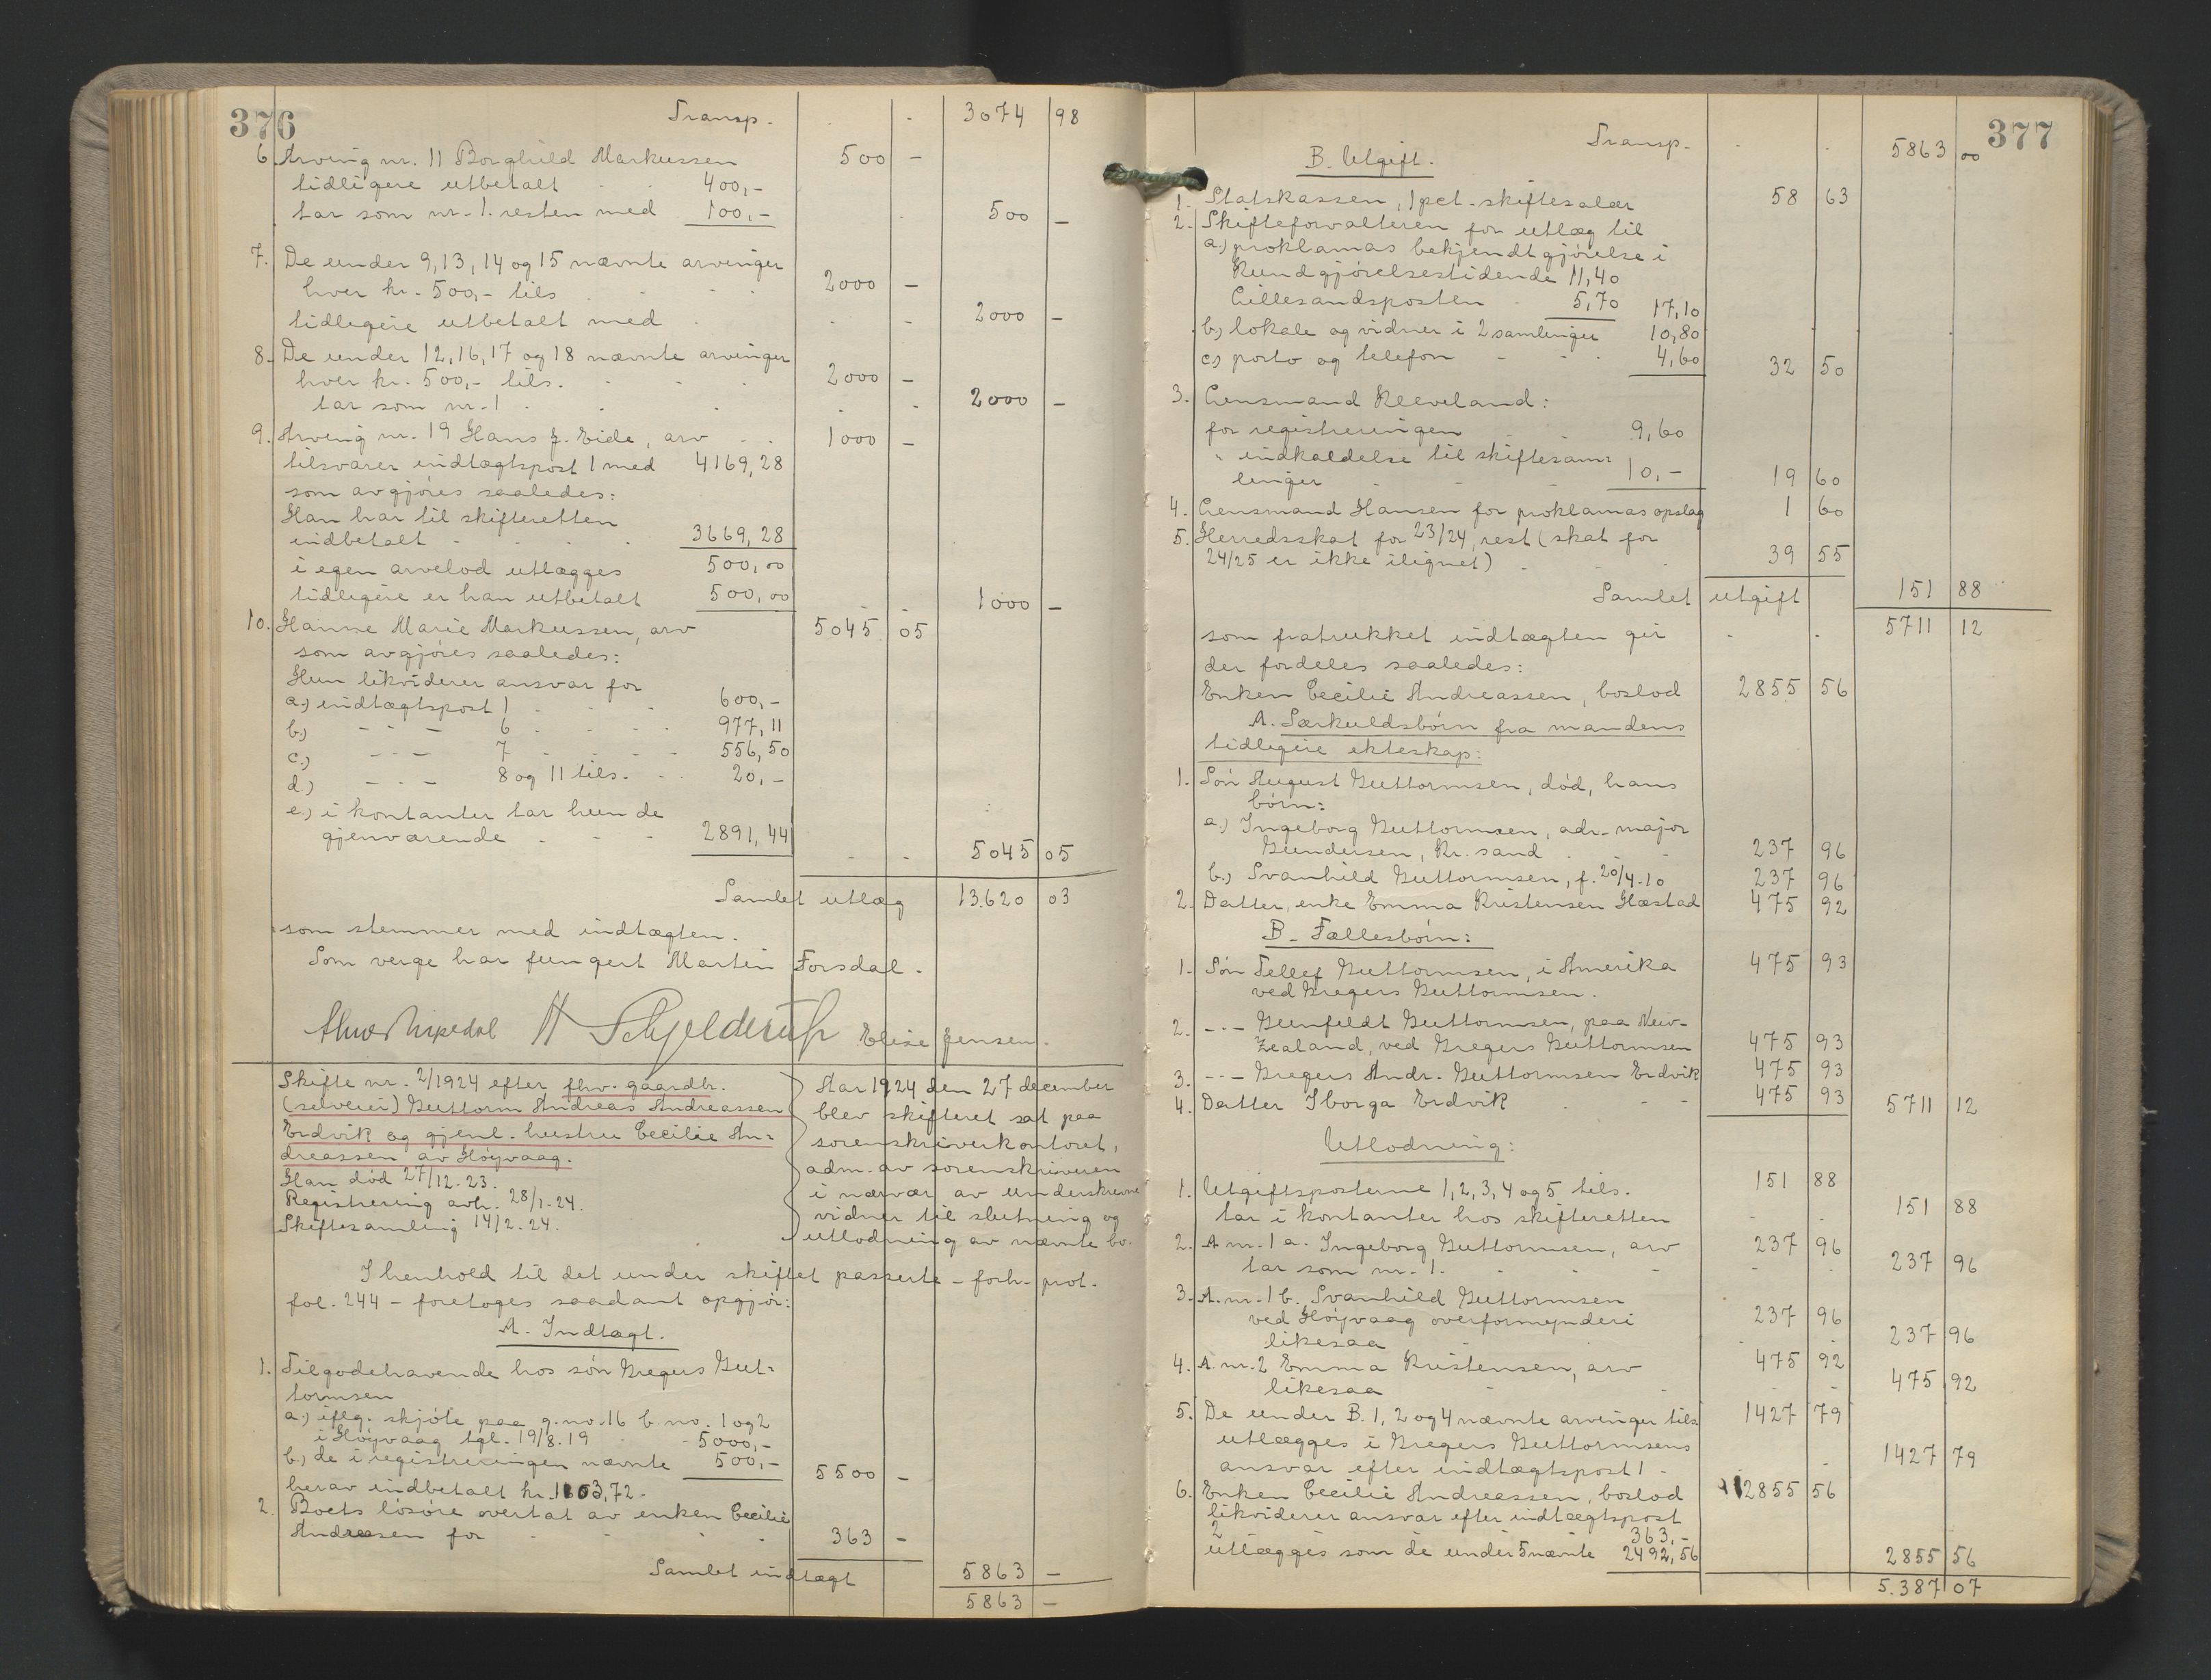 376
Transp. 3074 98
6. Arving nr. 11 Borghild Markussen 500 -
tidligere utbetalt 400,-
tar som nr. 1. resten med 100,- 500 -
7. De under 9, 13, 14 og 15 nævnte arvinger
hver kr. 500,- tils 2000 -
tidligere utbetalt med 2000 -
8. De under 12, 16, 17 og 18 nævnte arvinger
hver kr. 500,- tils. 2000 -
tar som nr. 1 2000 -
9. Arving nr. 19 Hans J. Eide, arv 1000 -
tilsvarer indtægtspost 1 med 4169,28
som avgjøres saaledes:
Han har til skifteretten
indbetalt 3669,28
i egen arvelod utlægges 500,00
tidligere er han utbetalt 500,00 1000 -
10. Hanne Marie Markussen, arv 5045 05
som avgjøres saaledes:
Hun likviderer ansvar for
a.) indtægtspost 1 600,-
b.) - - - 6 977,11
c.) - - - 7 556,50
d.) - - - 8 og 11 tils. 20,-
e.) i kontanter tar hun de
gjenværende 2891,44
5045 05
Samlet utlæg 13.620 03
som stemmer med indtægten.
Som verge har fungert Martin Forsdal.
Schjelderup Elise Jensen.
Skifte nr. 2/1924 efter fhv. gaardbr.
(selveier) Guttorm Andreas Andreassen
Erdvik og gjenl. hustru Cecilie An=
dreassen av Høyvaag.
Han død 27/12-23.
Registrering avh. 28/1-24.
Skiftesamling 14/2-24.
Aar 1924 den 27 december
blev skifteret sat paa
sorenskriverkontoret,
adm. av sorenskriveren
i nærvær av underskrevne
vidner til slutning og
utlodning av nævnte bo.
I henhold til det under skiftet passerte - forh. prot.
fol. 244 - foretoges saadant opgjør:
A. Indtægt.
1. Tilgodehavende hos søn Gregers Gut=
tormsen
a.) iflg. skjøte paa g.no. 16 b.no. 1 og 2
i Høyvaag tgl. 19/8.19 5000,-
b.) de i registreringen nævnte 500,- 5500 -
herav indbetalt kr. 1103,72.
2. Boets løsøre overtat av enken Cecilie
Andreassen for 363 -
Samlet indtægt 5863 -
5863 -
377
Transp. 5863 00
B. Utgift.
1. Statskassen, 1 pct. skiftesalær 58 63
2. Skifteforvalteren for utlæg til
a.) proklamas bekjendtgjørelse i
Kundgjørelsestidende 11,40
Lillesandsposten 5,70 17,10
b.) lokale og vidner i 2 samlinger 10,80
c.) porto og telefon 4,60 32 50
3. Lensmand Kleeveland:
for registreringen 9,60
" indkaldelse til skiftesam=
linger 10,- 19 60
4. Lensmand Hansen for proklamas opslag 1 60
5. Herredsskat for 23/24, rest (skat for
24/25 er ikke ilignet) 39 55
Samlet utgift 151 88
som fratrukket indtægten gir 5711 12
der fordeles saaledes:
Enken Cecilie Andreassen, boslod 2855 56
A. Særkuldsbørn fra mandens
tidligere ekteskap:
1. Søn August Guttormsen, død, hans
børn:
a.) Ingeborg Guttormsen, adr. major
Gundersen, Kr. sand 237 96
b.) Svanhild Guttormsen, f. 20/4-10 237 96
2. Datter, enke Emma Kristensen Hæstad 475 92
B. Fællesbørn:
1. Søn Tellef Guttormsen, i Amerika 475 93
ved Gregers Guttormsen.
2. - - - Gunfeldt Guttormsen, paa New-
Zealand, ved Gregers Guttormsen 475 93
3. - - - Gregers Andr. Guttormsen Erdvik 475 93
4. Datter Iborga Erdvik 475 93 5711 12
Utlodning:
1. Utgiftsposterne 1, 2, 3, 4 og 5 tils. 151 88
tar i kontanter hos skifteretten 151 88
2. A nr. 1 a. Ingeborg Guttormsen, arv 237 96
tar som nr. 1. 237 96
3. A. nr. 1 b. Svanhild Guttormsen
ved Høyvaag overformynderi 237 96
likesaa 237 96
4. A. nr. 2 Emma Kristensen, arv 475 92
likesaa 475 92
5. De under B. 1, 2 og 4 nævnte arvinger tils 1427 79
utlægges i Gregers Guttormsens
ansvar efter indtægtspost 1 1427 79
6. Enken Cecilie Andreassen, boslod 2855 56
likviderer ansvar efter indtægtspost
2 363,-
utlægges som de under 5 nævnte 2492,56 2855 56
5.387 07